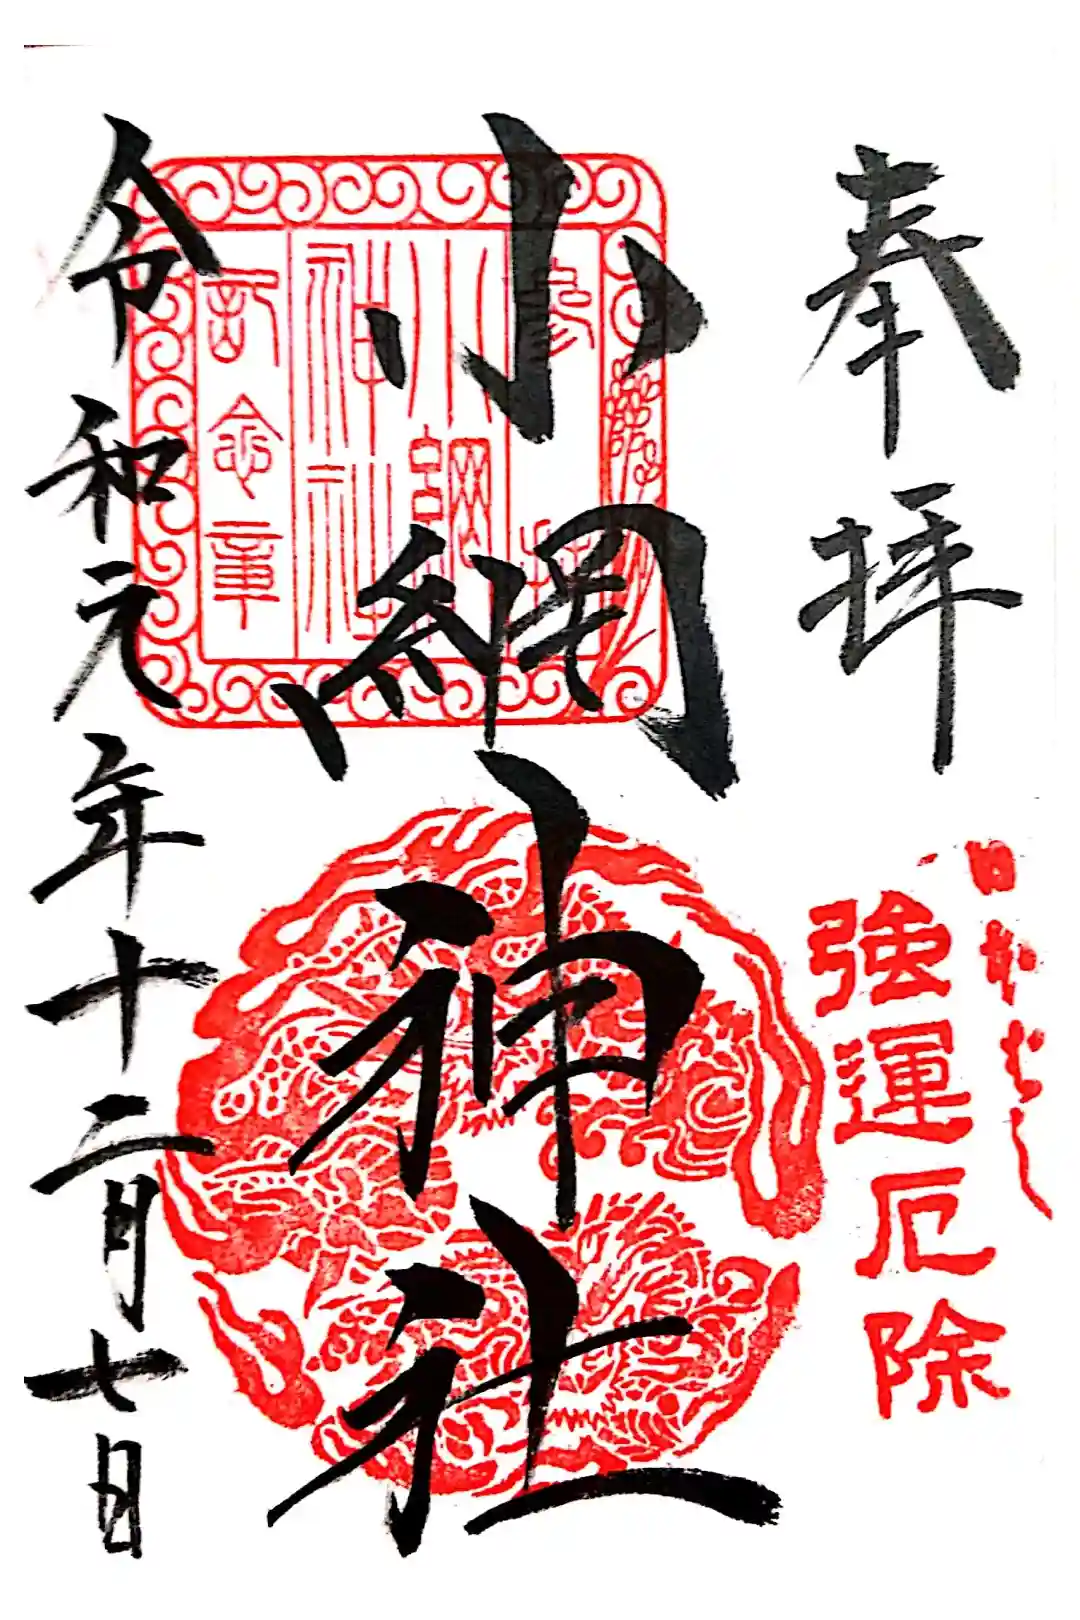 奉拝
日本ばし
強運厄除
小網神社
参拝
小網
神社
記念章
令和元年十二月七日